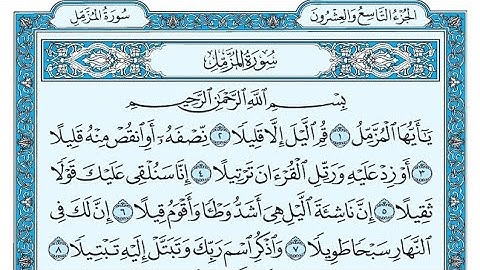 سُورَةُ المُزَّمِّل
الجُزْءُ التَّاسِعُ وَالعِشْرُونَ
سُورَةُ المُزَّمِّل
بِسْمِ ٱللَّهِ ٱلرَّحْمَٰنِ ٱلرَّحِيمِ
يَٰٓأَيُّهَا ٱلْمُزَّمِّلُ ١ قُمِ ٱلَّيْلَ إِلَّا قَلِيلًا ٢ نِّصْفَهُۥٓ أَوِ ٱنقُصْ مِنْهُ قَلِيلًا
٣ أَوْ زِدْ عَلَيْهِ وَرَتِّلِ ٱلْقُرْءَانَ تَرْتِيلًا ٤ إِنَّا سَنُلْقِى عَلَيْكَ قَوْلًا
ثَقِيلًا ٥ إِنَّ نَاشِئَةَ ٱلَّيْلِ هِىَ أَشَدُّ وَطْـًٔا وَأَقْوَمُ قِيلًا ٦ إِنَّ لَكَ فِى
ٱلنَّهَارِ سَبْحًا طَوِيلًا ٧ وَٱذْكُرِ ٱسْمَ رَبِّكَ وَتَبَتَّلْ إِلَيْهِ تَبْتِيلًا ٨